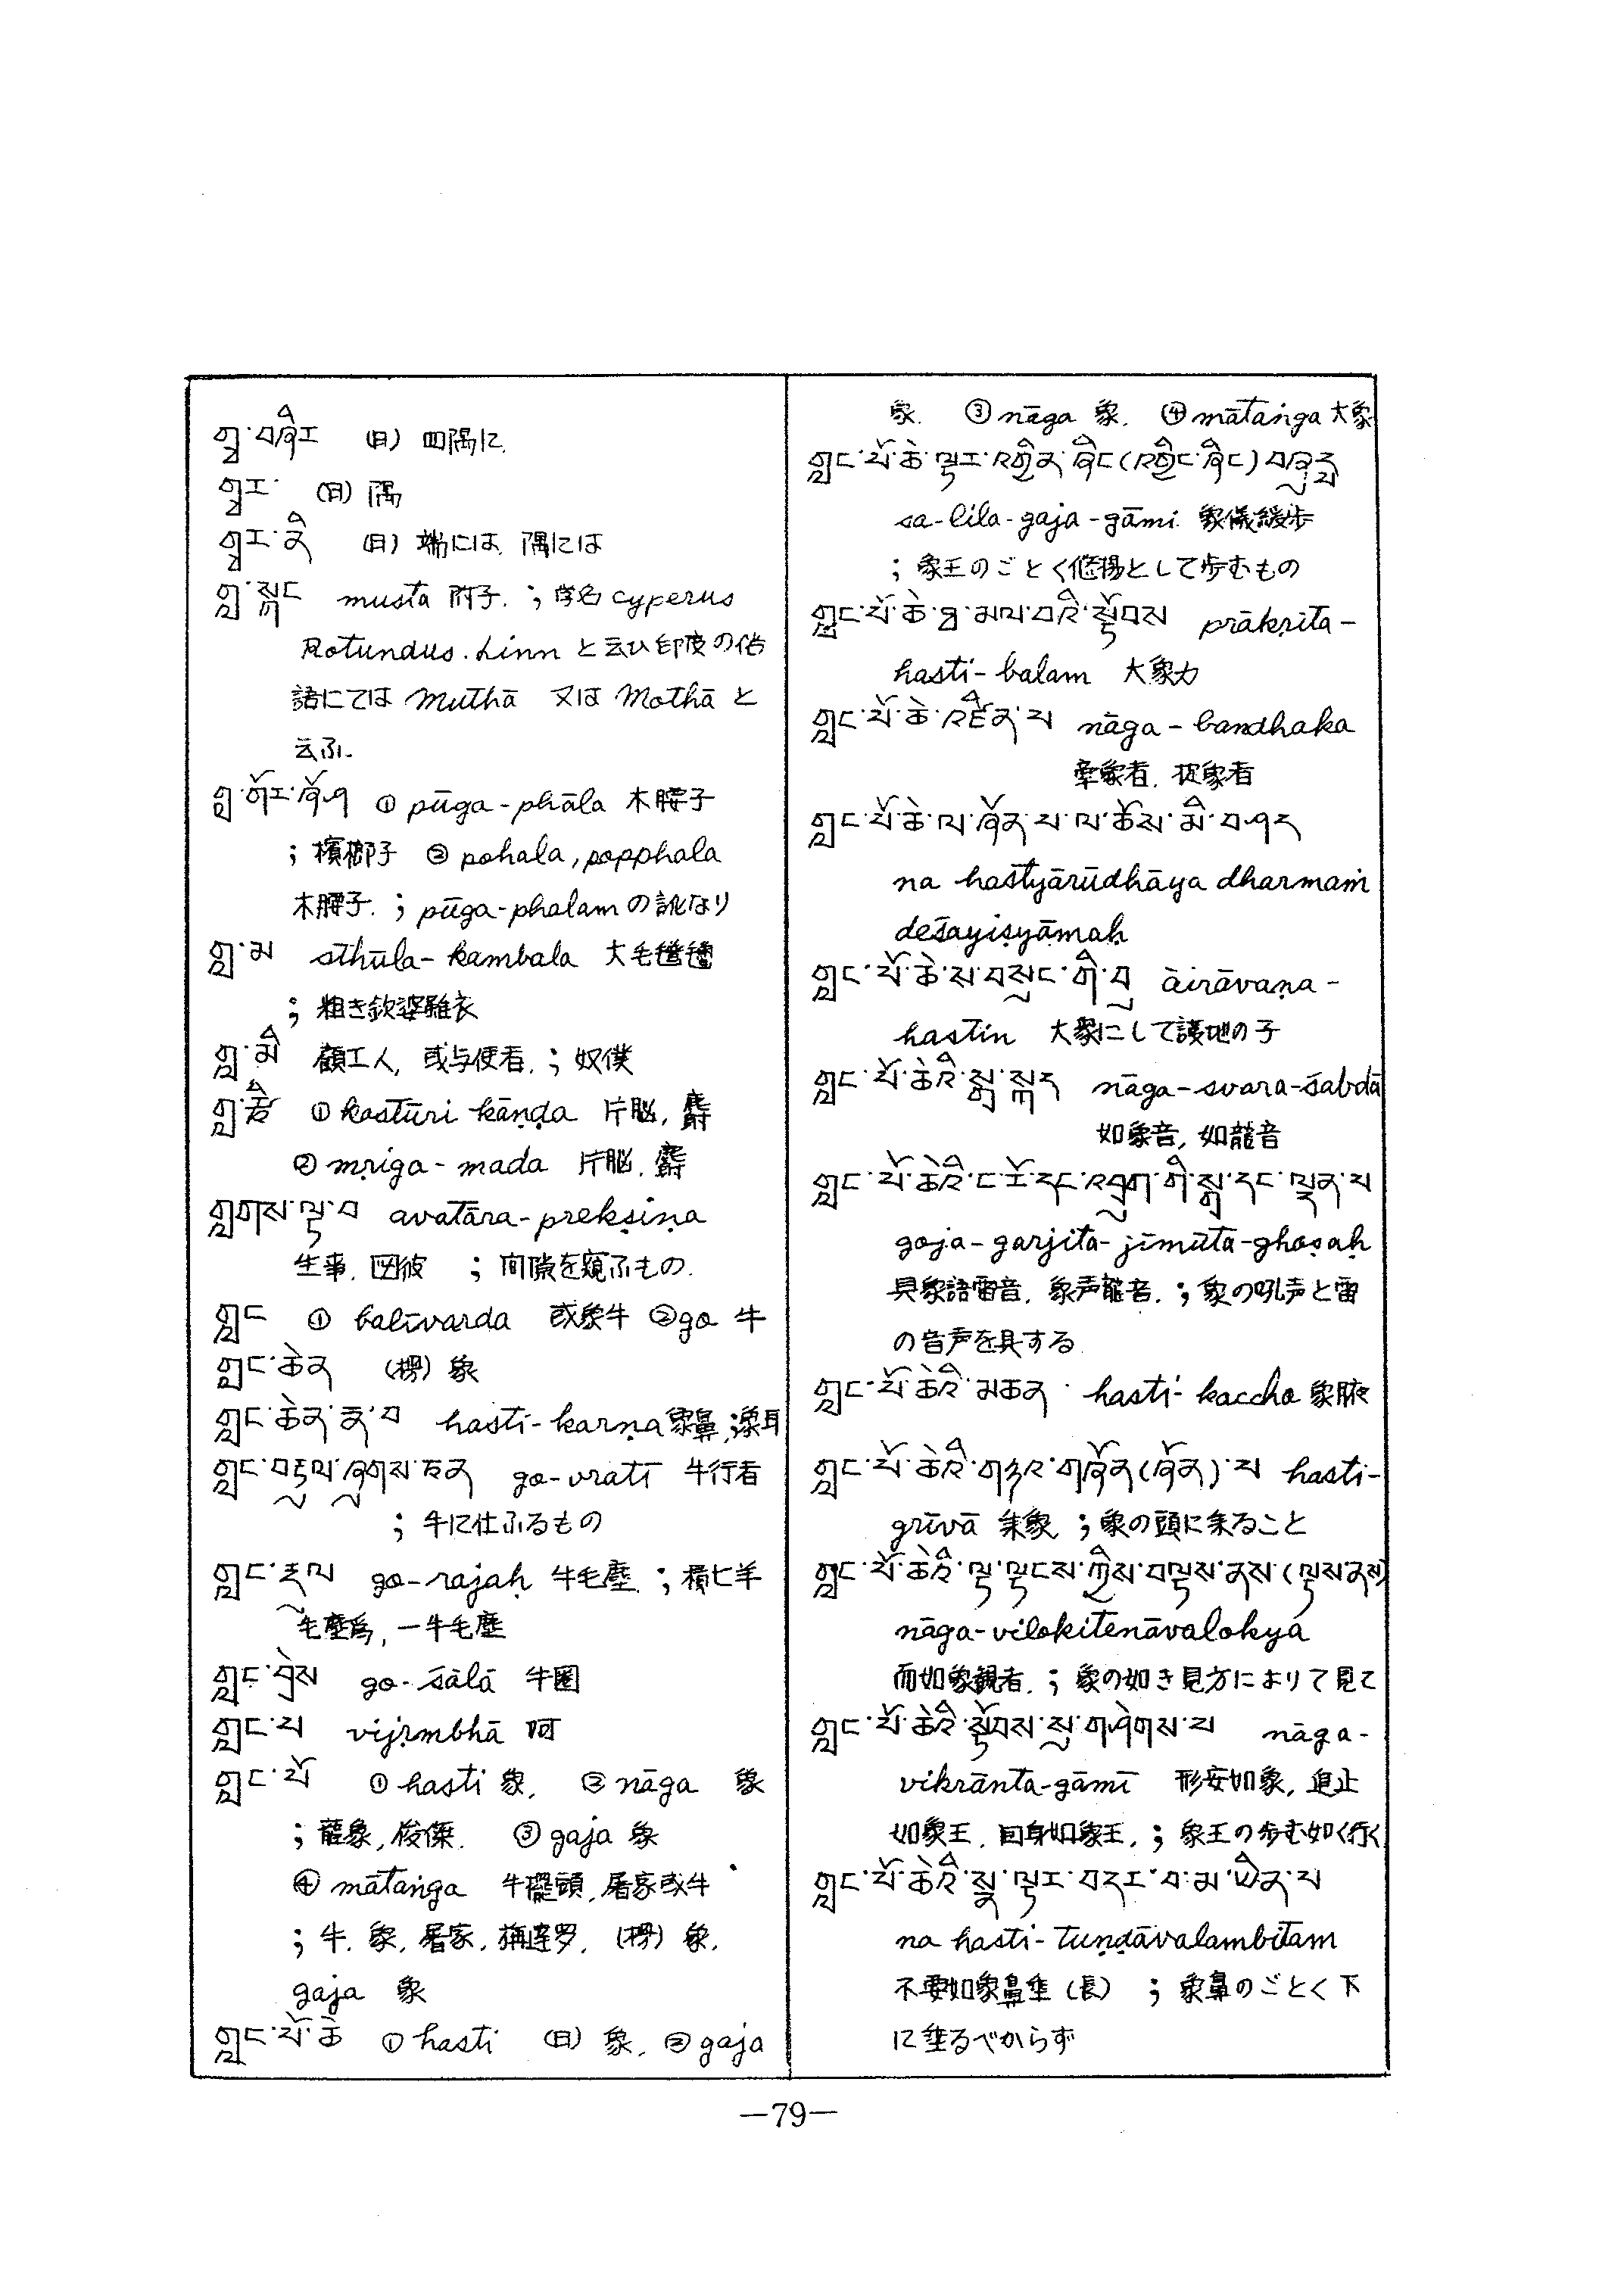 གྲྭ་བཞིར (日) 四隅に.
གྲྭར་ (日) 隅
གྲྭར་ནི (日) 端には, 隅には
གླ་སྒང musta 附子. ; 学名 cyperus
Rotundus. Linn と云ひ印度の俗
語にては Muthā 又は Mothā と
云ふ.
གླ་གོར་ཞོ་ཤ ① pūga-phāla 木腰子
; 檳榔子 ② pohala, popphala
木腰子. ; pūga-phalam の訛なり
གླ་མ sthūla-kambala 大毛氆氌
; 粗き欽婆羅衣
གླ་མི 顧工人, 或与使者. ; 奴僕
གླ་རྩི ① kastūri kāṇḍa 片脳, 麝
② mṛiga-mada 片脳, 麝
གླགས་ལྟ་བ avatāra-prekṣiṇa
生事, 因彼 ; 间隙を窺ふもの.
གླང ① balīvarda 或象牛 ② go 牛
གླང་ཆེན (楞) 象
གླང་ཆེན་རྣ་བ hasti-karṇa 象鼻, ;象耳
གླང་བརྟུལ་ཞུགས་ཅན go-vratī 牛行者
; 牛に仕ふるもの
གླང་རྡུལ go-rajaḥ 牛毛塵. ; 積七羊
毛塵爲, 一牛毛塵
གླང་ཕྲེས go-śālā 牛圈
གླང་པ vijṛmbhā 呵
གླང་པོ ① hasti 象, ② nāga 象
; 龍象, 俊傑. ③ gaja 象
④ mātaṅga 牛擺頭, 屠家或牛
; 牛, 象, 屠家, 旃達罗, (楞) 象,
gaja 象
གླང་པོ་ཆེ ① hasti (日) 象, ② gaja
象. ③ nāga 象, ④ mātaṅga 大象
གླང་པོ་ཆེ་ལྟར་འགྱིན་ཞིང་(འགྱིང་ཞིང)བཞུད
sa-lila-gaja-gāmi. 象儀緩歩
; 象王のごとく悠揚として歩むもの
གླང་པོ་ཆེ་ཐ་མལ་བའི་སྟོབས prākṛita-
hasti-balam 大象力
གླང་པོ་ཆེ་འཛིན་པ nāga-bandhaka
牽象者, 捉象者
གླང་པོ་ཆེ་ལ་ཞོན་པ་ལ་ཆོས་མི་བཤད
na hastyārūdhāya dharmaṁ
deśayiṣyāmaḥ
གླང་པོ་ཆེ་ས་བསུང་གི་བུ āirāvaṇa-
hastin 大象にして護地の子
གླང་པོ་ཆེའི་སྒྲ་སྐད nāga-svara-śabdā
如象音, 如龍音
གླང་པོ་ཆེའི་ང་རོ་དང་འབྲུག་གི་སྒྲ་དང་ལྡན་པ
goja-garjita-jīmūta-ghoṣaḥ
具象語雷音, 象声龍音. ; 象の吼声と雷
の音声を具する
གླང་པོ་ཆེའི་མཆན་ hasti-kaccha 象腋
གླང་པོ་ཆེའི་གཉར་གཞོན(ཞོན)་པ hasti-
grīvā 乗象 ; 象の頭に乗ること
གླང་པོ་ཆེའི་ལྟ་ལྟངས་ཀྱིས་བལྟས་ནས་(ལྟས་ནས)
nāga-vilokitenāvalokya
而如象観者. ; 象の如き見方によりて見て
གླང་པོ་ཆེའི་སྟོབས་སུ་གཤེགས་པ nāga-
vikrānta-gāmī 形安如象, 進止
如象王, 回身如象王, ; 象王の歩む如く行く
གླང་པོ་ཆེའི་སྣ་ལྟར་བརྡར་བ་མ་ཡིན་པ
na hasti-tuṇḍāvalambitam
不要如象鼻垂 (長) ; 象鼻のごとく下
に垂るべからず
—79—